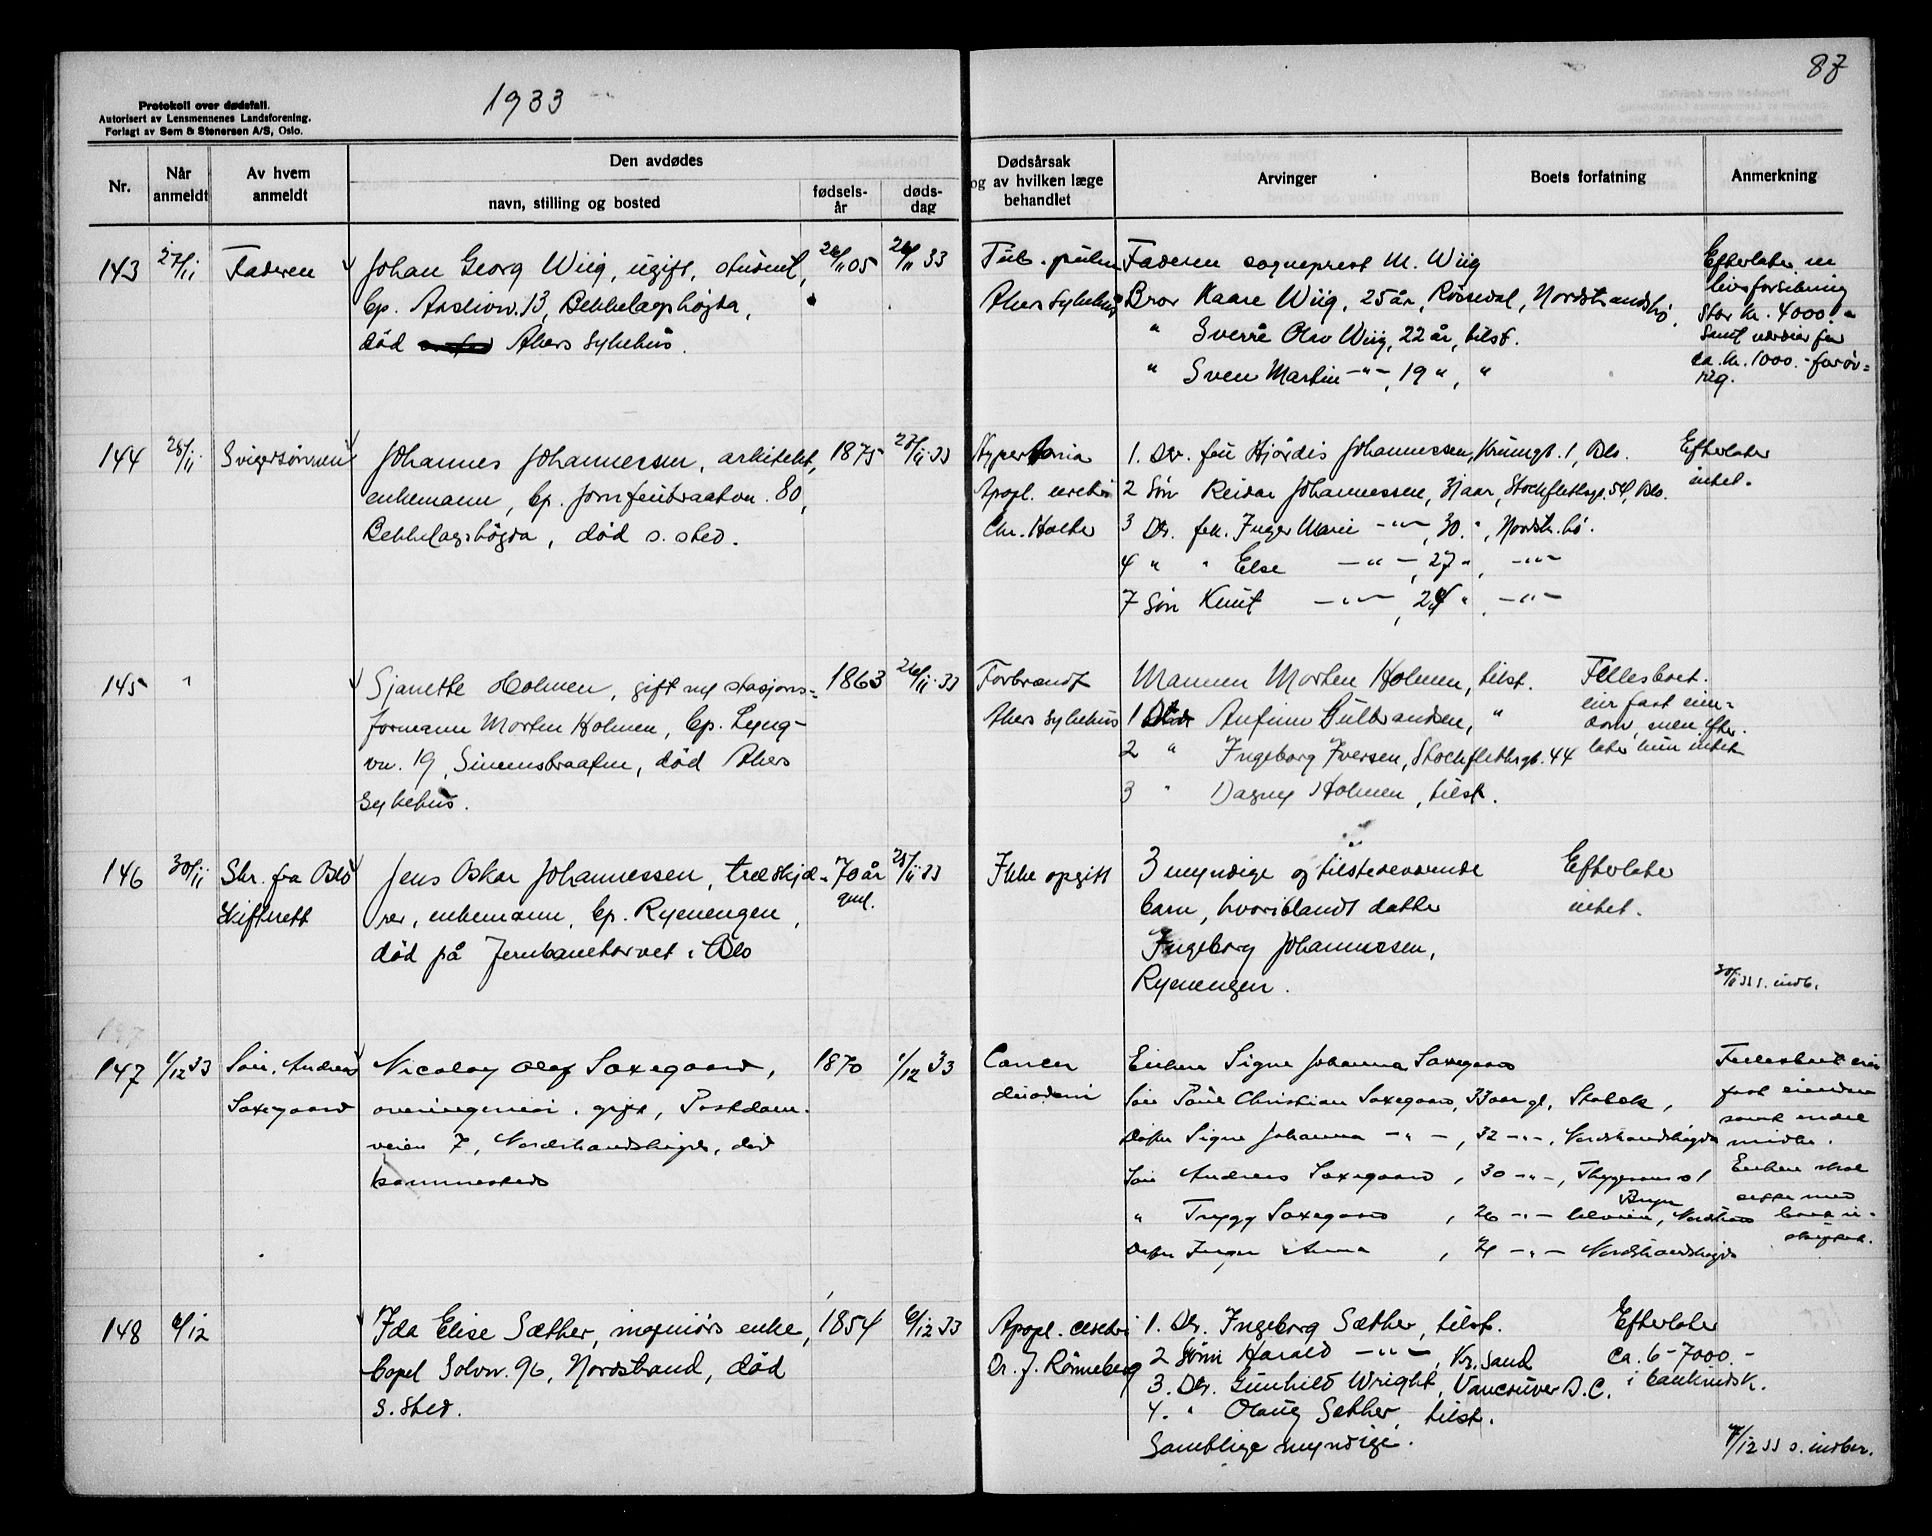 1933
87
Protokoll over dødsfall.
Autorisert av Lensmennenes Landsforening.
Forlagt av Sem & Stenersen A/S, Oslo.
Nr.
Når anmeldt
Av hvem anmeldt
Den avdødes
navn, stilling og bosted
fødsels-år
døds-dag
Dødsårsak og av hvilken læge behandlet
Arvinger
Boets forfatning
Anmerkning
143 27/11 Faderen
Johan Georg Wiig, ugift, student,
bp. 13, Bekkelagshøgda,
død Akers sykehus.
26/11 05 26/11 33
Tub. pulm
Akers sykehus
Faderen sogneprest M. Wiig
Bror Kaare Wiig, 25 år, Nordstrandshø.
" Sverre Olav Wiig, 22 år, tilst.
" Sven Martin -"-, 19 ", "
Efterlater en
livsforsikring
stor kr. 4000.-
samt verdier for
ca. kr. 1000.- forøv=
rig.
144 28/11 Svigersønnen
Johannes Johannessen, arkitekt,
enkemann, bp. Jomfrubraatvn. 80,
Bekkelagshøgda, død s. sted.
1875 27/11 33
Hypertonia
Apopl. cerebri
Chr. Holter
1. Dtr. fru Hjördis Johannessen, 1, Oslo.
2 Søn Reidar Johannessen, 31 aar, Stockflethsgt. 54, Oslo.
3 Dtr. frk. Inger Marie -"-, 30 ", Nordstr.hø.
4 " " Else -"-, 27 ", -"-
7 Søn Knut -"-, 24 ", -"-
Efterlater
intet.
145 "
Sjanette Holmen, gift m/ stasjons=
formann Morten Holmen, bp. Lyng-
vn. 19, Simensbraaten, død Akers
sykehus.
1863 26/11 33
Forbrandt
Akers sykehus
Mannen Morten Holmen, tilst.
1 Gulbrandsen, "
2 " Ingeborg Iversen, Stockflethsgt. 44
3 " Dagny Holmen, tilst.
Fellesboet.
eier fast eien=
dom, men efter-
later hun intet
146 30/11 Skr. fra Oslo
Skifterett
Jens Oskar Johannessen, træskjæ-
rer, enkemann, bp. Ryenengen,
død på Jernbanetorvet i Oslo
70 år
gml.
25/11 33
Ikke opgitt
3 myndige og tilstedeværende
barn, hvoriblandt datter
Ingeborg Johannessen,
Ryenengen.
Efterlater
intet.
30/11 33 s. indb.
147 1/12 33 Søn, Andreas
Saxegaard
Nicolay Olaf Saxegaard,
overingeniør, gift, Postdam-
veien 7, Nordstrandshøgda, død
sammesteds
1870 1/12 33
Cancer
duodeni
Enken Signe Johanna Saxegaard
Søn Paul Christian Saxegaard, 33 aar gl.,
Datter Signe Johanna -"-, 32 -"-, Nordstrandshøgda
Søn Andreas Saxegaard, 30 -"-,
Bryn
" Trygg Saxegaard, 26 -"-
Datter Inger Anna, -"- Nordstrandshøgda
Fellesboet eier
fast eiendom
samt endel
midler.
Enken skal
sitte med
boet u-
skiftet.
148 6/12
Ida Elise Sæther, ingeniørs enke,
bopel Solvn. 96, Nordstrand, død
s. sted.
1854 6/12 33
Apopl. cerebri
Dr. J. Rønneberg
1. Dtr. Ingeborg Sæther, tilst.
2 Sønn Harald -"-, Kr.sand
3. Dtr. Gunhild Wright, Vancouver B.C.
4. " Olaug Sæther, tilst.
Samtlige myndige.
Efterlater
ca. 6-7000.-
i bankinnsk.
7/12 33 s. indber.